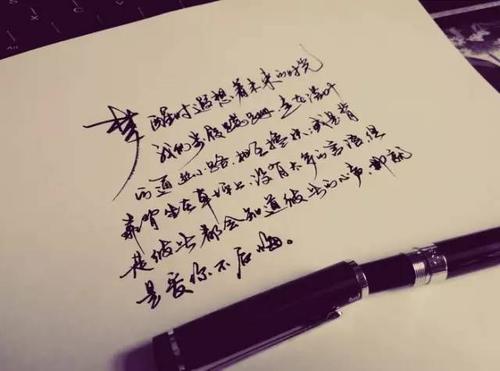 梦醒时遐想着未来的时光
我们步履蹒跚,走在落叶
的道边小路,相互搀扶,或是背
靠背坐在草坪上,没有太多的言语但
是彼此都会知道彼此的心声,那就
是爱你不后悔。